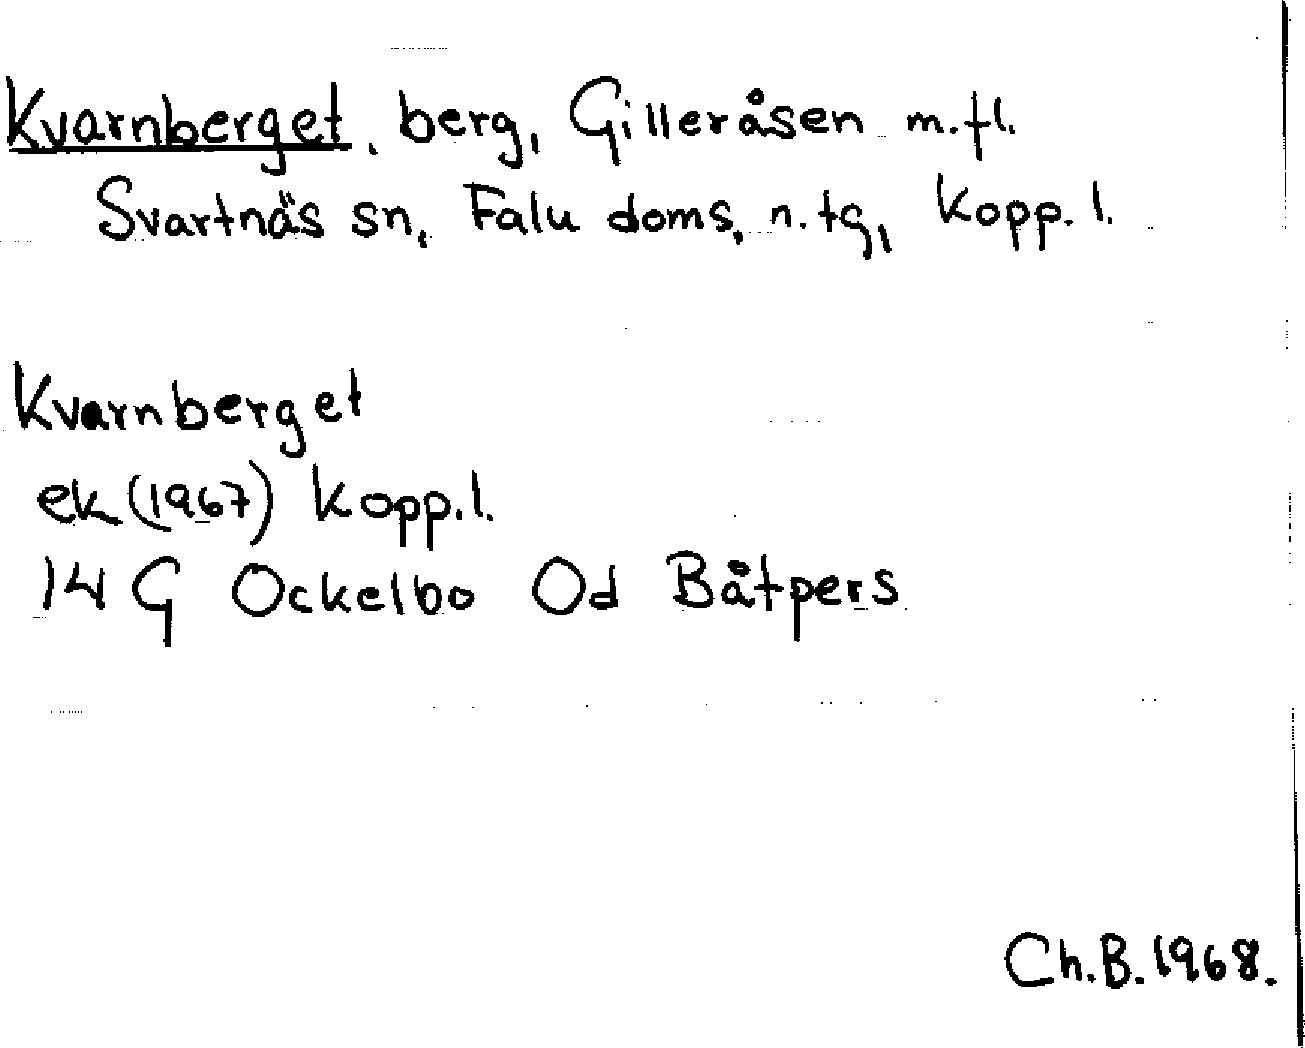 Kvarnberget, berg, Gilleråsen m.fl.
Svartnäs sn, Falu doms, n. tg, Kopp. l.
Kvarnberget
ek (1967) Kopp. l.
14 G Ockelbo Od Båtpers
Ch.B. 1968.